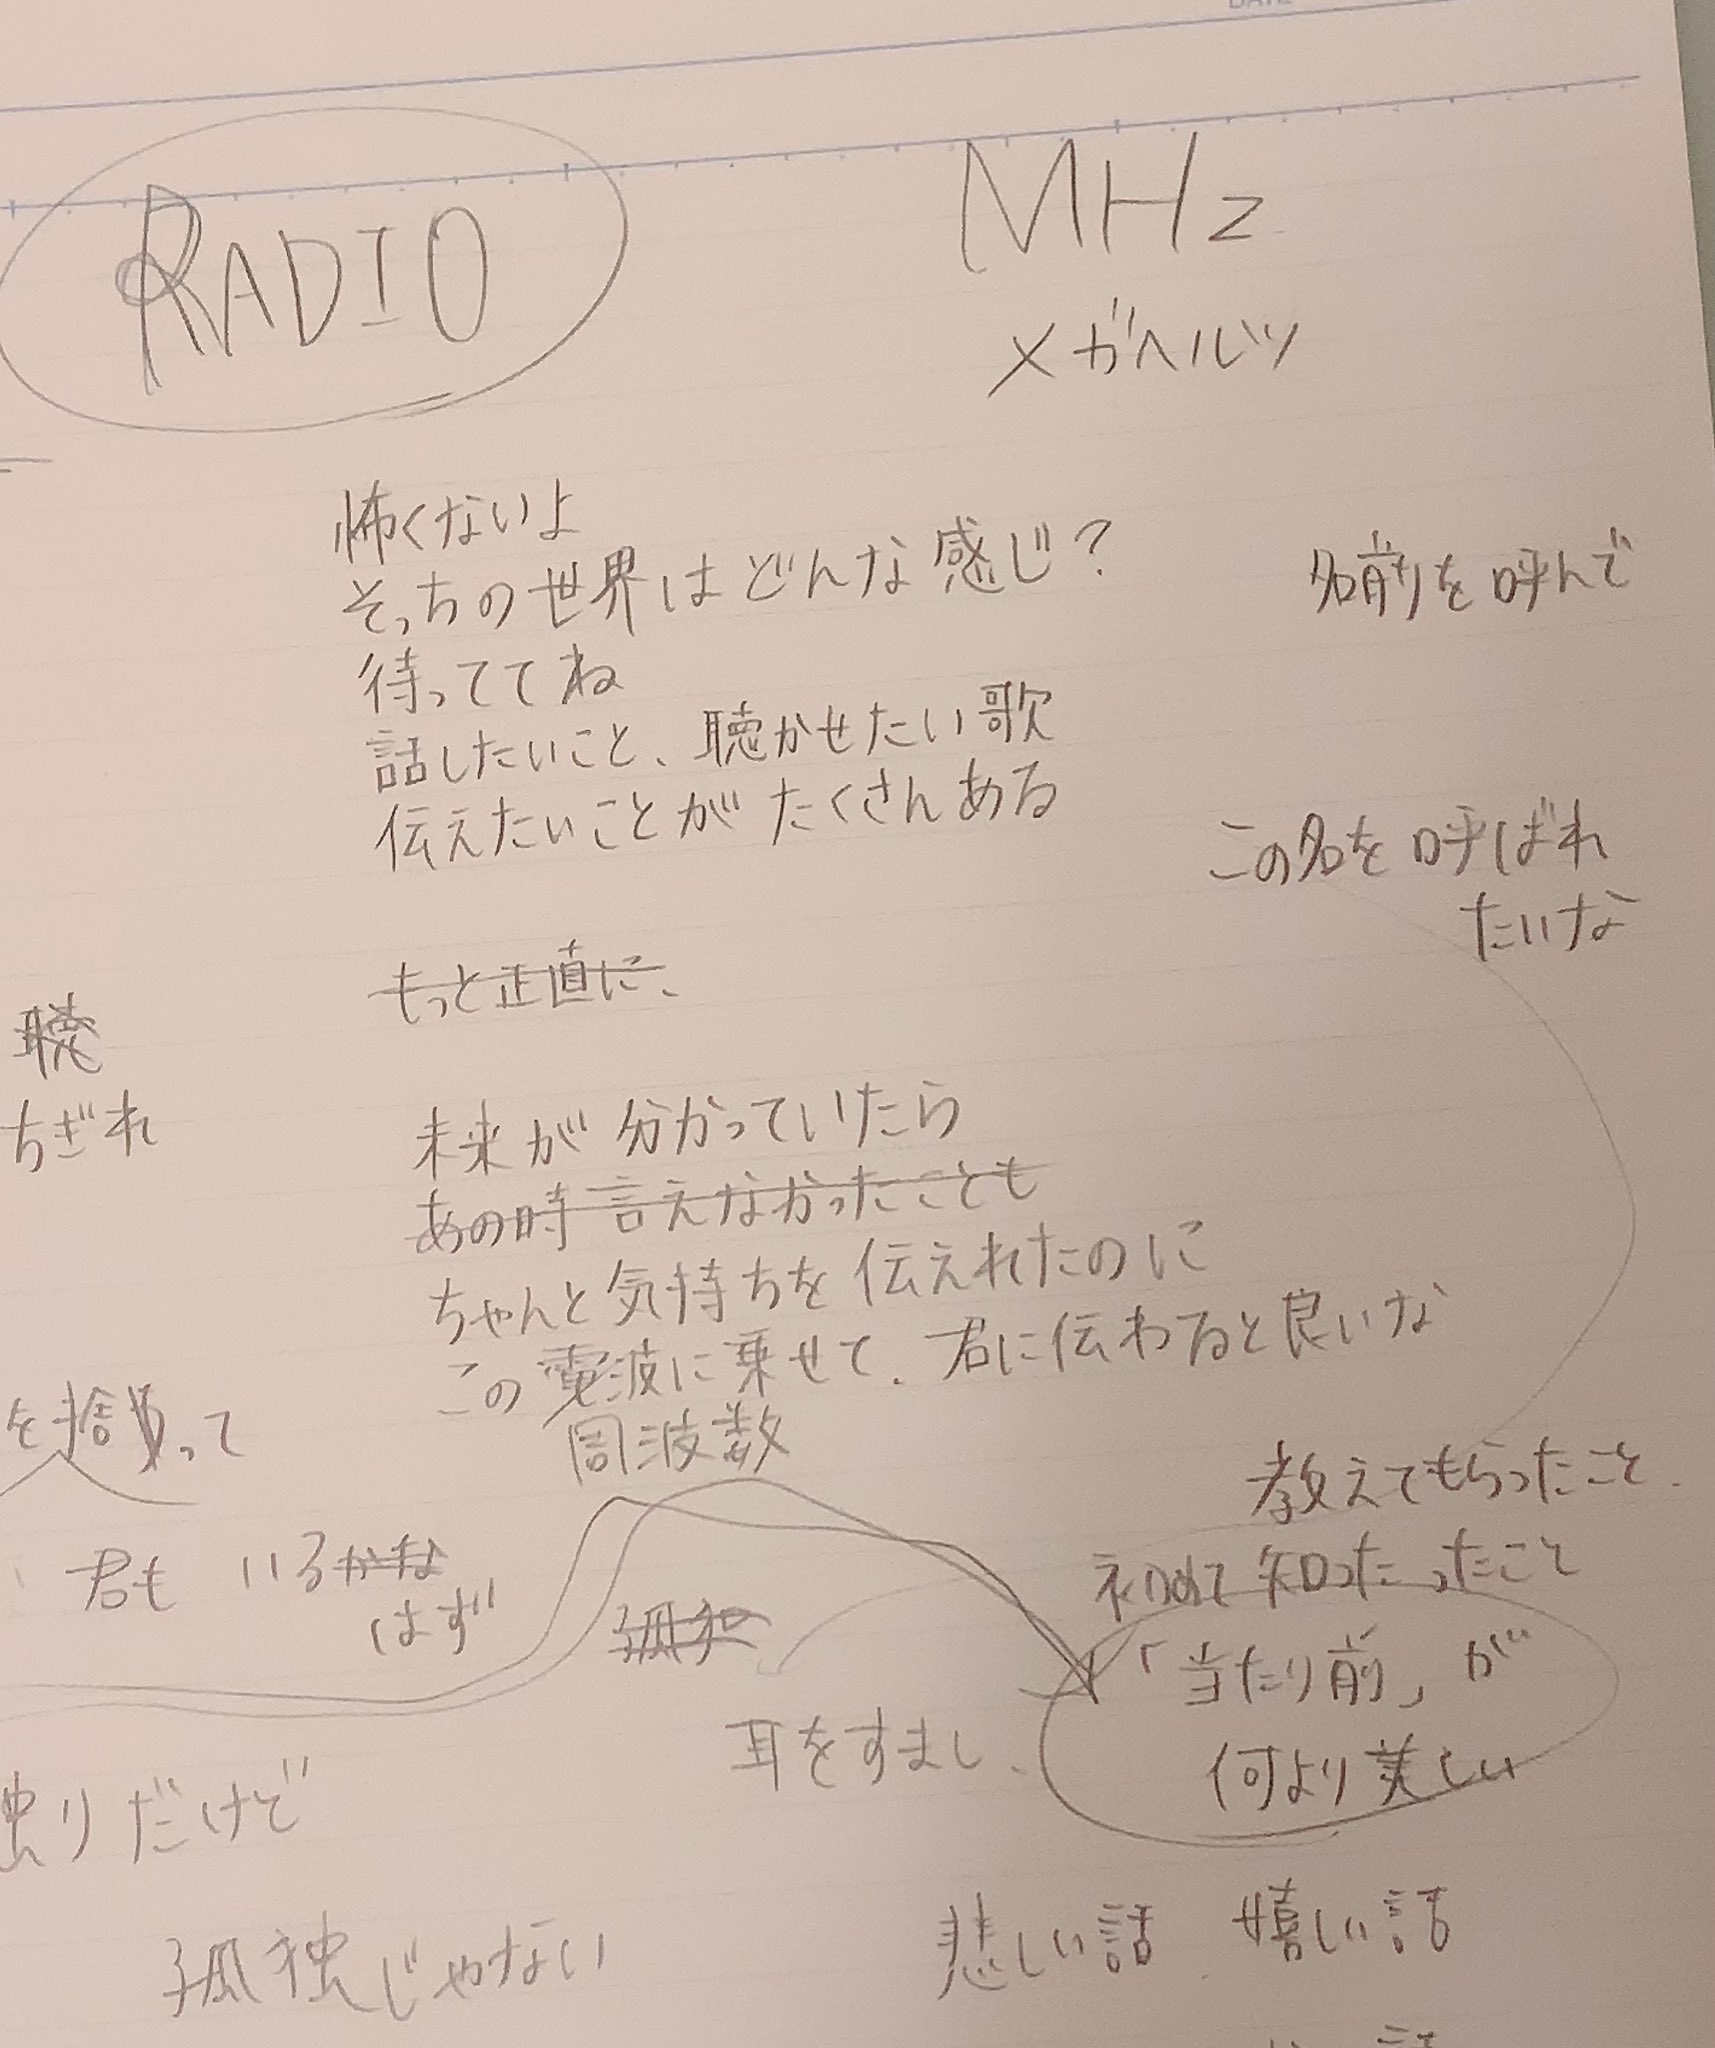 DATE
RADIO
MHz
メガヘルツ
怖くないよ
そっちの世界はどんな感じ？
待っててね
話したいこと、聴かせたい歌
伝えたいことがたくさんある
名前を呼んで
この名を呼ばれ
たいな
もっと正直に、
聴
ちぎれ
未来が分かっていたら
あの時言えなかったことも
ちゃんと気持ちを伝えれたのに
この電波に乗せて、君に伝わると良いな
周波数
を捨 って
君もいるかな
はず
孤独
教えてもらったこと
初めて知ったったこと
「当たり前」が
何より美しい
耳をすまし、
独りだけど
孤独じゃない
悲しい話、嬉しい話
話